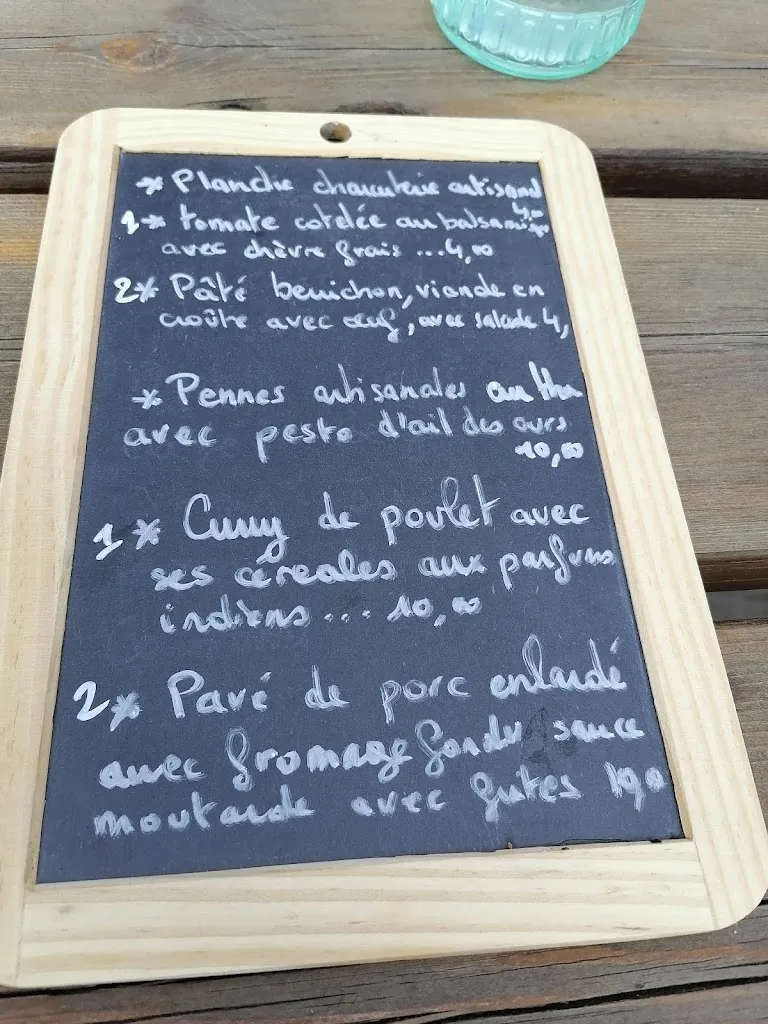 * Planche charcuterie artisanal
4,00
1 * tomate cotelée au balsamique
avec chèvre frais ... 4,00
2 * Pâté berrichon, viande en
croûte avec œuf, avec salade 4,
* Pennes artisanales au thon
avec pesto d'ail des ours
10,00
1 * Curry de poulet avec
ses céréales aux parfums
indiens ... 10,00
2 * Pavé de porc enlardé
avec fromage fondu sauce
moutarde avec frites